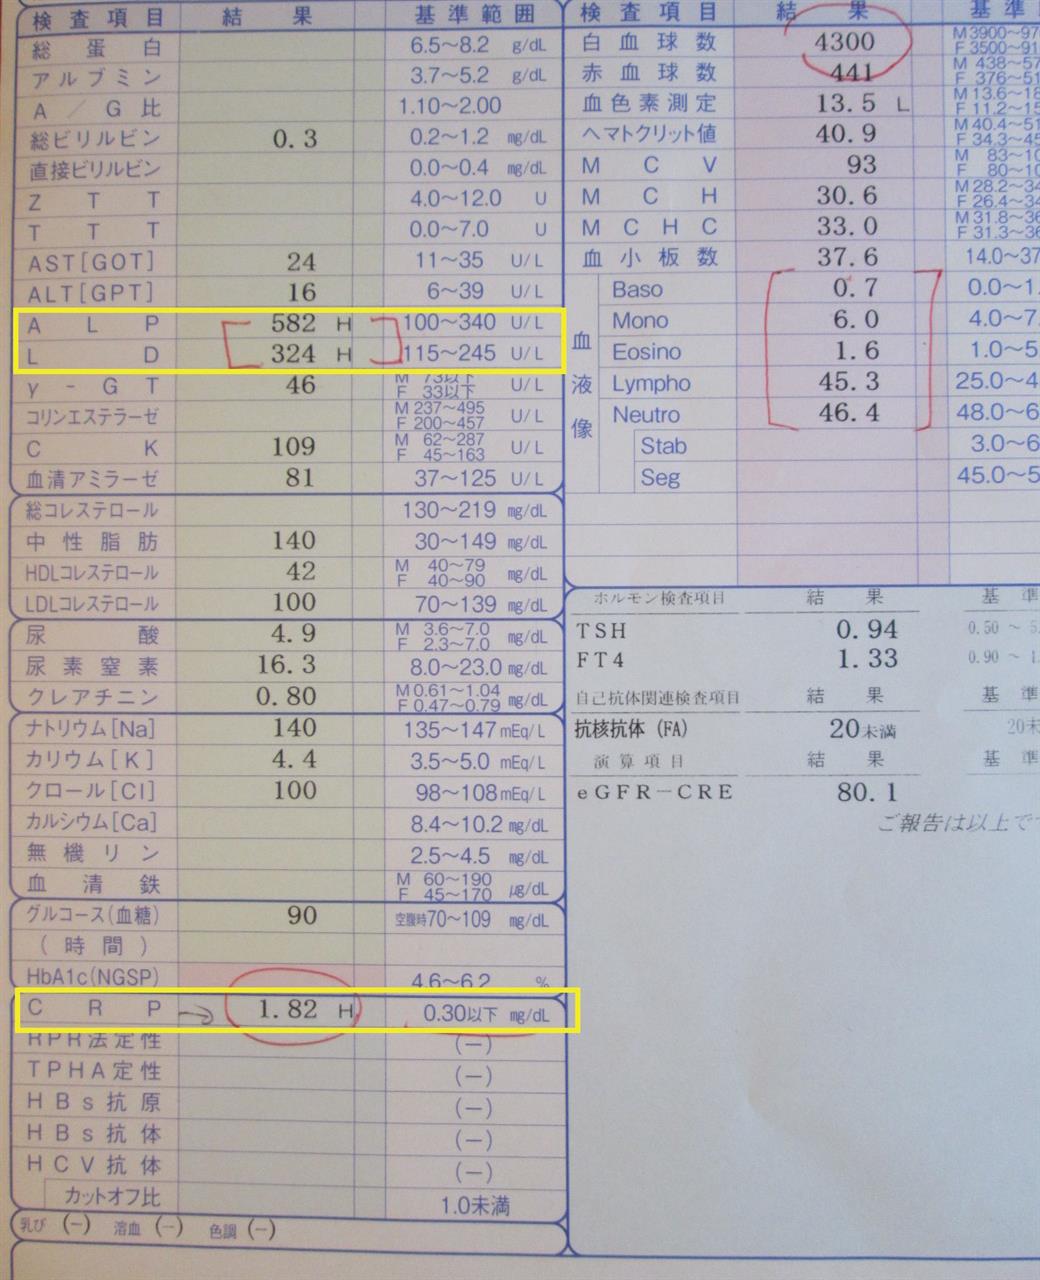 検査項目 結果 基準範囲
総蛋白 6.5〜8.2 g/dL
アルブミン 3.7〜5.2 g/dL
A/G比 1.10〜2.00
総ビリルビン 0.3 0.2〜1.2 mg/dL
直接ビリルビン 0.0〜0.4 mg/dL
ZTT 4.0〜12.0 U
TTT 0.0〜7.0 U
AST[GOT] 24 11〜35 U/L
ALT[GPT] 16 6〜39 U/L
ALP 582 H 100〜340 U/L
LD 324 H 115〜245 U/L
γ-GT 46 M 73以下 F 33以下 U/L
コリンエステラーゼ M 237〜495 F 200〜457 U/L
CK 109 M 62〜287 F 45〜163 U/L
血清アミラーゼ 81 37〜125 U/L
総コレステロール 130〜219 mg/dL
中性脂肪 140 30〜149 mg/dL
HDLコレステロール 42 M 40〜79 F 40〜90 mg/dL
LDLコレステロール 100 70〜139 mg/dL
尿酸 4.9 M 3.6〜7.0 F 2.3〜7.0 mg/dL
尿素窒素 16.3 8.0〜23.0 mg/dL
クレアチニン 0.80 M 0.61〜1.04 F 0.47〜0.79 mg/dL
ナトリウム[Na] 140 135〜147 mEq/L
カリウム[K] 4.4 3.5〜5.0 mEq/L
クロール[Cl] 100 98〜108 mEq/L
カルシウム[Ca] 8.4〜10.2 mg/dL
無機リン 2.5〜4.5 mg/dL
血清鉄 M 60〜190 F 45〜170 μg/dL
グルコース(血糖) 90 空腹時70〜109 mg/dL
(時間)
HbA1c(NGSP) 4.6〜6.2 %
CRP 1.82 H 0.30以下 mg/dL
RPR法定性 (−)
TPHA定性 (−)
HBs抗原 (−)
HBs抗体 (−)
HCV抗体 (−)
カットオフ比 1.0未満
乳び (−) 溶血 (−) 色調 (−)
検査項目 結果 基準
白血球数 4300 M3900〜97 F3500〜91
赤血球数 441 M 438〜57 F 376〜51
血色素測定 13.5 L M13.6〜18 F11.2〜15
ヘマトクリット値 40.9 M40.4〜51 F34.3〜45
MCV 93 M 83〜10 F 80〜10
MCH 30.6 M28.2〜34 F26.4〜34
MCHC 33.0 M31.8〜36 F31.3〜36
血小板数 37.6 14.0〜37
血液像
Baso 0.7 0.0〜1.
Mono 6.0 4.0〜7.
Eosino 1.6 1.0〜5
Lympho 45.3 25.0〜4
Neutro 46.4 48.0〜6
Stab 3.0〜6
Seg 45.0〜5
ホルモン検査項目 結果 基準
TSH 0.94 0.50 〜 5.
FT4 1.33 0.90 〜 1.
自己抗体関連検査項目 結果 基準
抗核抗体(FA) 20未満 20未
演算項目 結果 基準
eGFR−CRE 80.1
ご報告は以上で